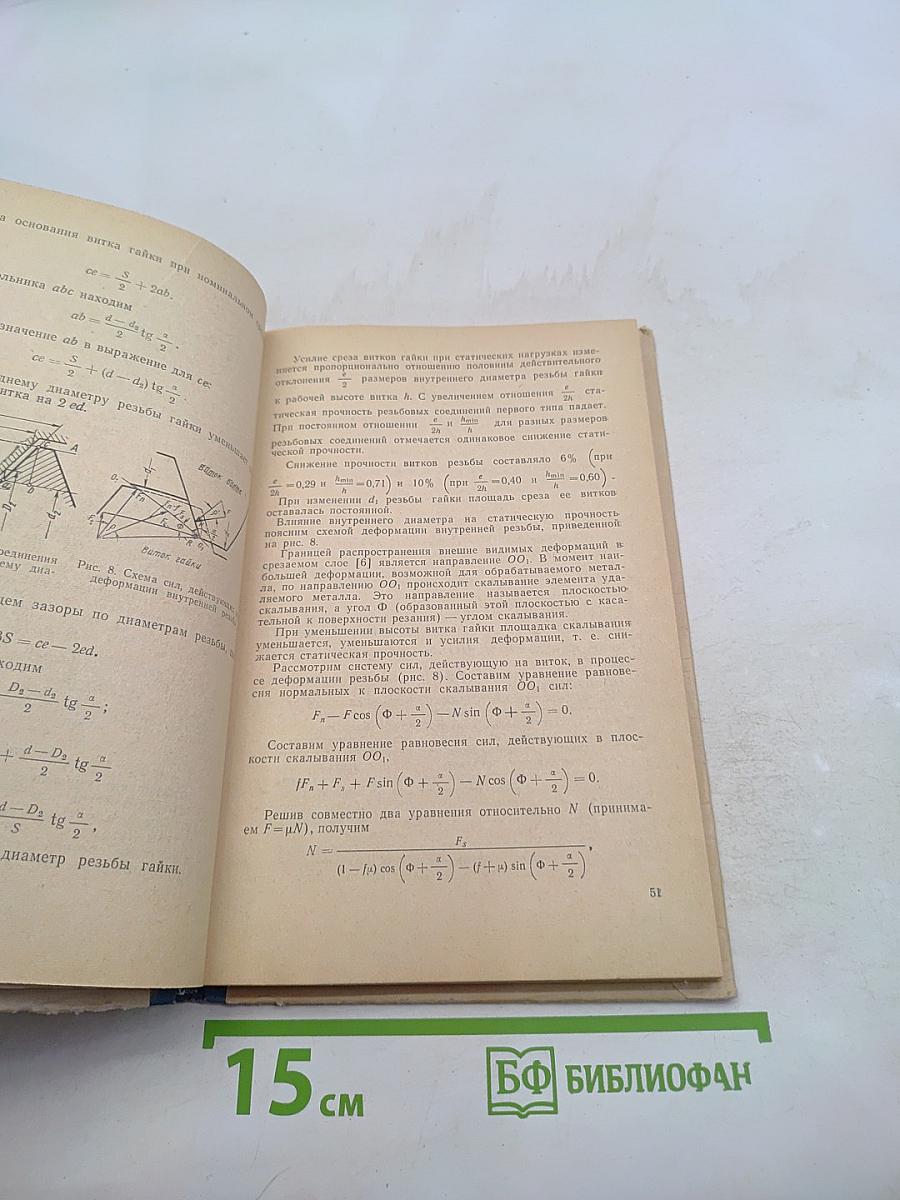 а основания витка гайки при номинальном
ce = S/2 + 2ab.
ольника abc находим
ab = (d — d₂)/2 tg α/2.
значение ab в выражение для ce:
ce = S/2 + (d — d₂) tg α/2.
днему диаметру резьбы гайки уменьшает
итка на 2 ed.
A
Виток гайки
единения
ему диа-
Рис. 8. Схема сил, действующих
деформации внутренней резьбы
дем зазоры по диаметрам резьбы,
BS = ce — 2ed.
ходим
(D₂ — d₂)/2 tg α/2;
+ (d — D₂)/2 tg α/2
(d — D₂)/S tg α/2,
диаметр резьбы гайки.
Усилие среза витков гайки при статических нагрузках изме-
няется пропорционально отношению половины действительного
отклонения e/2 размеров внутреннего диаметра резьбы гайки
к рабочей высоте витка h. С увеличением отношения e/2h ста-
тическая прочность резьбовых соединений первого типа падает.
При постоянном отношении e/2h и hmin/h для разных размеров
резьбовых соединений отмечается одинаковое снижение стати-
ческой прочности.
Снижение прочности витков резьбы составляло 6% (при
e/2h =0,29 и hmin/h =0,71) и 10% (при e/2h =0,40 и hmin/h =0,60).
При изменении d₁ резьбы гайки площадь среза ее витков
оставалась постоянной.
Влияние внутреннего диаметра на статическую прочность
поясним схемой деформации внутренней резьбы, приведенной
на рис. 8.
Границей распространения внешне видимых деформаций в
срезаемом слое [6] является направление OO₁. В момент наи-
большей деформации, возможной для обрабатываемого метал-
ла, по направлению OO₁ происходит скалывание элемента уда-
ляемого металла. Это направление называется плоскостью
скалывания, а угол Φ (образованный этой плоскостью с каса-
тельной к поверхности резания) — углом скалывания.
При уменьшении высоты витка гайки площадка скалывания
уменьшается, уменьшаются и усилия деформации, т. е. сни-
жается статическая прочность.
Рассмотрим систему сил, действующую на виток, в процес-
се деформации резьбы (рис. 8). Составим уравнение равнове-
сия нормальных к плоскости скалывания OO₁ сил:
Fₙ — F cos (Φ + α/2) — N sin (Φ + α/2) = 0.
Составим уравнение равновесия сил, действующих в плос-
кости скалывания OO₁,
fFₙ + Fₛ + F sin (Φ + α/2) — N cos (Φ + α/2) = 0.
Решив совместно два уравнения относительно N (принима-
ем F=μN), получим
N = Fₛ/((1 — fμ) cos (Φ + α/2) — (f + μ) sin (Φ + α/2)),
51
15 см
БФ БИБЛИОФАН